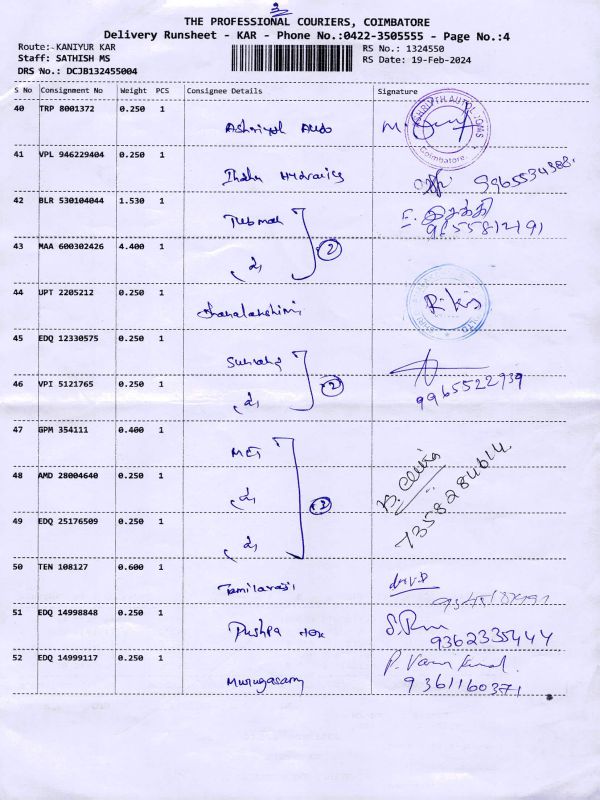 THE PROFESSIONAL COURIERS, COIMBATORE
Delivery Runsheet - KAR - Phone No.:0422-3505555 - Page No.:4
Route:- KANIYUR KAR
RS No.: 1324550
Staff: SATHISH MS
RS Date: 19-Feb-2024
DRS No.: DCJB132455004
S No Consignment No Weight PCS Consignee Details Signature
40 TRP 8001372 0.250 1
Coimbatore.
41 VPL 946229404 0.250 1
42 BLR 530104044 1.530 1
E. இசக்கி
9655812191
43 MAA 600302426 4.400 1
2
44 UPT 2205212 0.250 1
Dhanalakshimi
45 EDQ 12330575 0.250 1
46 VPI 5121765 0.250 1
2
9965522939
47 GPM 354111 0.400 1
48 AMD 28004640 0.250 1
49 EDQ 25176509 0.250 1
7358284614
50 TEN 108127 0.600 1
Tamilarasi
51 EDQ 14998848 0.250 1
Pushpa
9362335444
52 EDQ 14999117 0.250 1
Murugasamy
9361160371